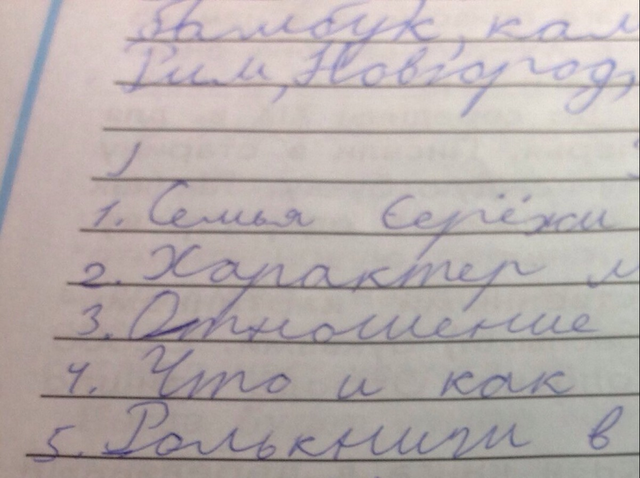 Бамбук, кам
Рим, Новгород,
1. Семья Серёжи
2. Характер м
3. Отношение
4. Что и как
5. Ролькниги в